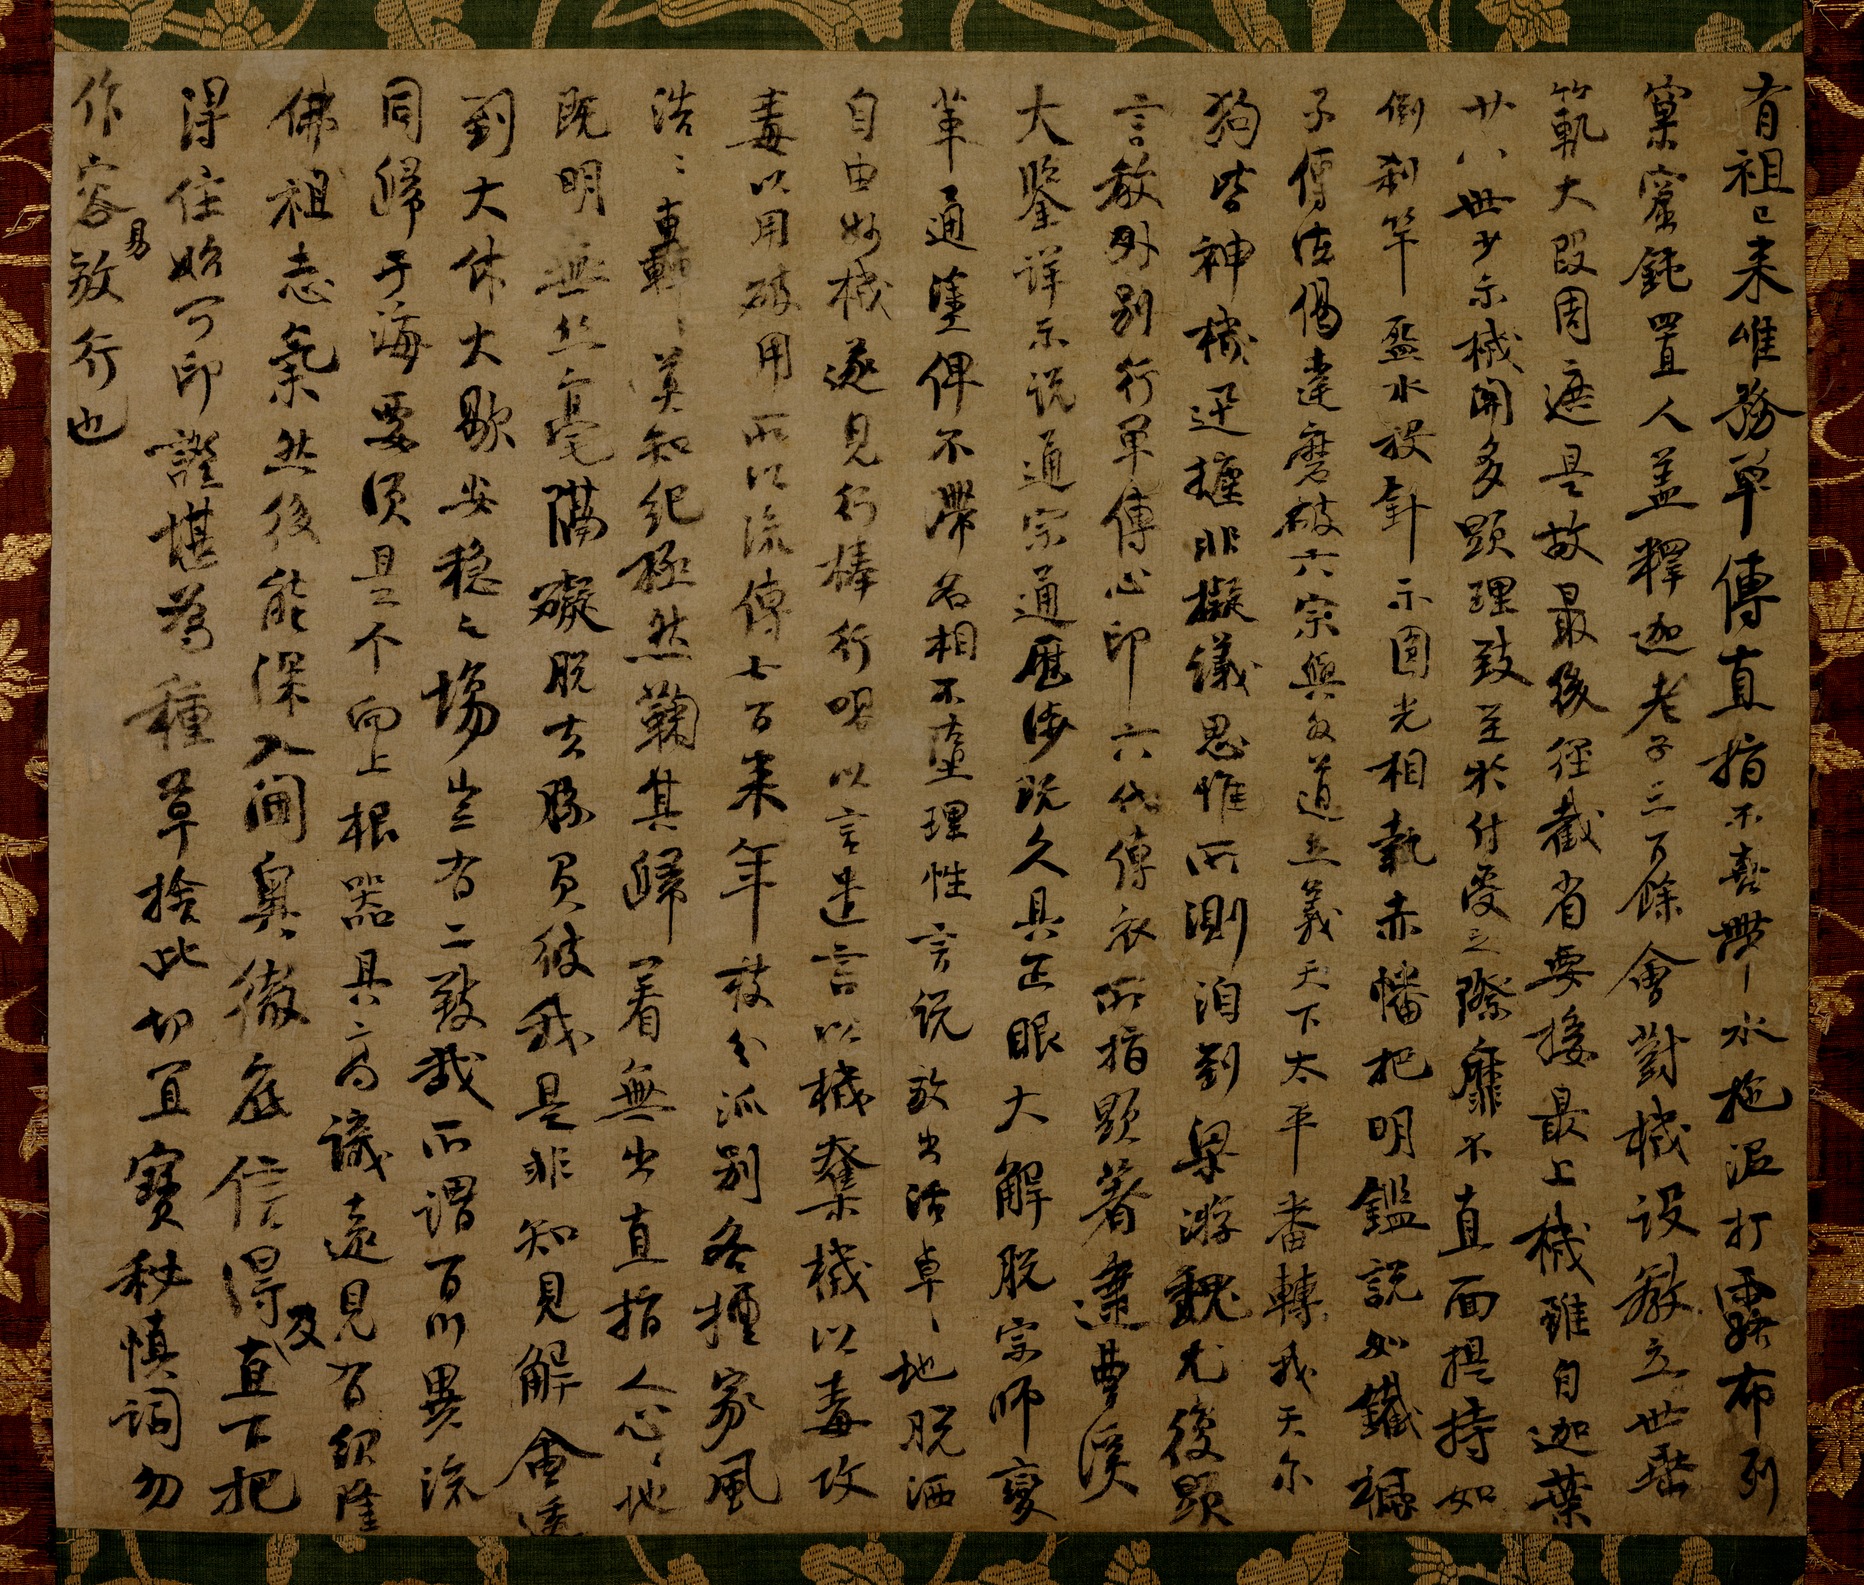 有祖已来唯務單傳直指不喜帶水拖泥打露布列
窠窟鈍置人蓋釋迦老子三百餘會對機設教立世楷
範大段周遮是故最後徑截省要接最上機雖自迦葉
廿八世少示機關多顯理致至於付受之際靡不直面提持如
倒刹竿盌水投針示圓光相執赤幡把明鑑説如鐵橛
子傳法偈達磨破六宗與外道立義天下太平番轉我天尔
狗皆神機迅捷非擬議思惟所測洎到梁游魏尤復顯
言教外別行單傳心印六代傳衣所指顯著逮曹溪
大鑒詳示説通宗通歴渉既久具正眼大解脱宗師變
革通塗俾不滯名相不墮理性言説放出活卓〻地脱洒
自由妙機遂見行棒行喝以言遣言以機奪機以毒攻
毒以用破用所以流傳七百来年枝分派別各擅家風
浩〻轟〻莫知紀極然鞠其歸著無出直指人心〻地
既明無絲毫隔礙脱去勝負彼我是非知見解會透
到大休大歇安穩之場豈有二致哉所謂百川異流
同歸于海要須是个向上根器具高識遠見有紹隆
佛祖志氣然後能深入閫奧徹底信得及直下把
得住始可印證堪為種草捨此切宜寶秘慎詞勿
作容易放行也